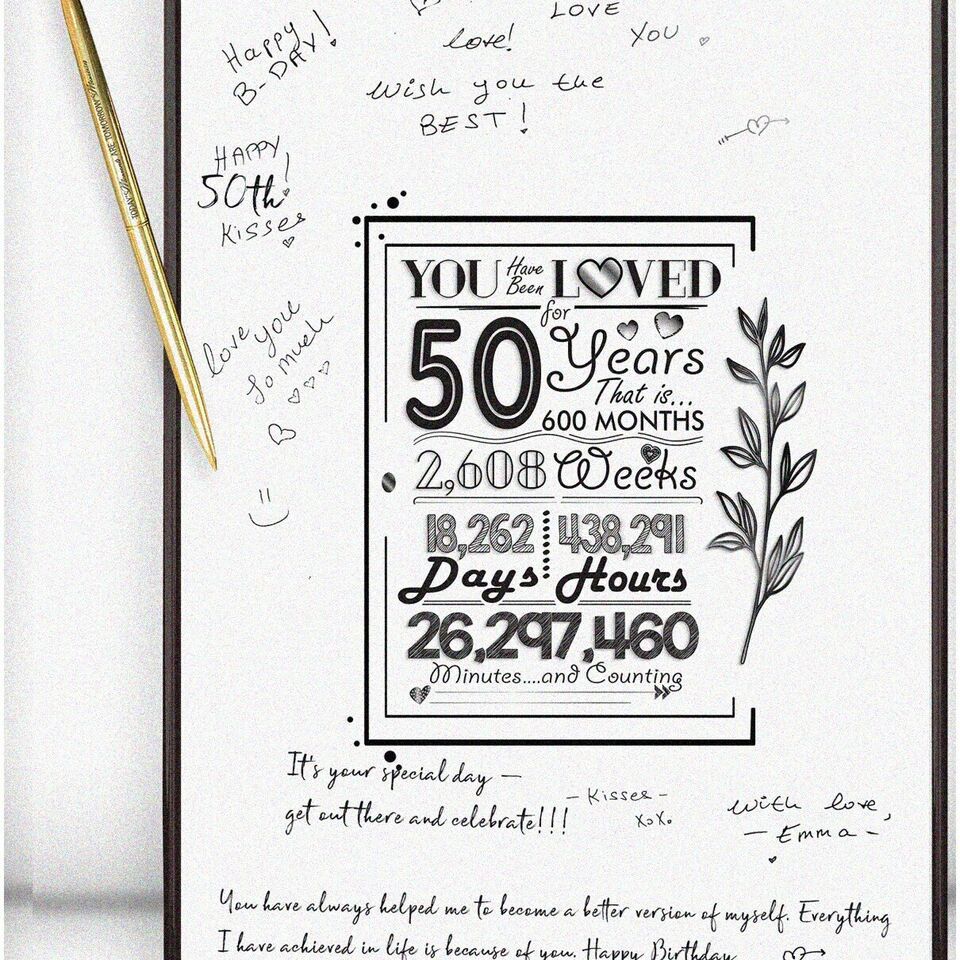 LOVE
love!
YOU
Happy
B-DAY!
Wish you the
BEST!
HAPPY
50th!
Kisses
TODAY'S ARE TOMORROW'S
love you
so much
YOU Have Been LOVED
for
50 Years
That is...
600 MONTHS
2,608 Weeks
18,262 438,291
Days Hours
26,297,460
Minutes....and Counting
It's your special day —
get out there and celebrate!!!
- Kisses -
XoXo
With love,
- Emma -
You have always helped me to become a better version of myself. Everything
I have achieved in life is because of you. Happy Birthday